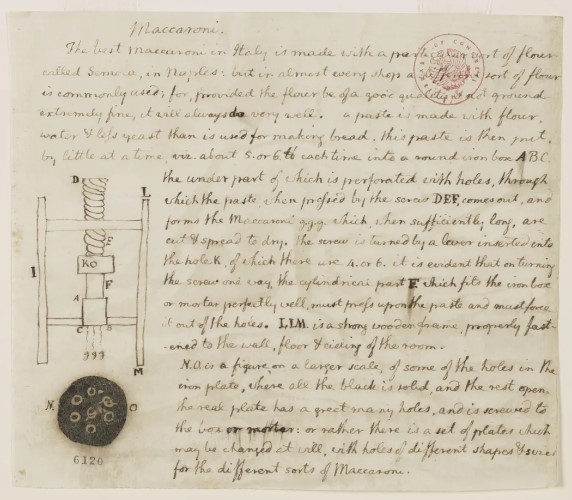 Maccaroni.
The best maccaroni in Italy is made with a particular sort of flour
called Semola, in Naples: but in almost every shop a different sort of flour
is commonly used; for, provided the flour be of a good quality & not ground
extremely fine, it will always do very well. a paste is made with flour,
water & less yeast than is used for making bread. this paste is then put,
by little at a time, viz. about 5. or 6. lb each time into a round iron box ABC.
the under part of which is perforated with holes, through
which the paste, when pressed by the screw DEF, comes out, and
forms the Maccaroni g.g.g. which, when sufficiently long, are
cut & spread to dry. the screw is turned by a lever inserted into
the hole K, of which there are 4. or 6. it is evident that on turning
the screw one way, the cylindrical part F. which fits the iron box
or mortar perfectly well, must press upon the paste and must force
it out of the holes. LLM. is a strong wooden frame, properly fast-
-ened to the wall, floor & cieling of the room.
N.O. is a figure, on a larger scale, of some of the holes in the
iron plate, where all the black is solid, and the rest open.
the real plate has a great many holes, and is screwed to
the box or mortar: or rather there is a set of plates which
may be changed at will, with holes of different shapes & sizes
for the different sorts of Maccaroni.
D
L
E
I
KO
F
A
C
B
g g g
M
N.
O
6120